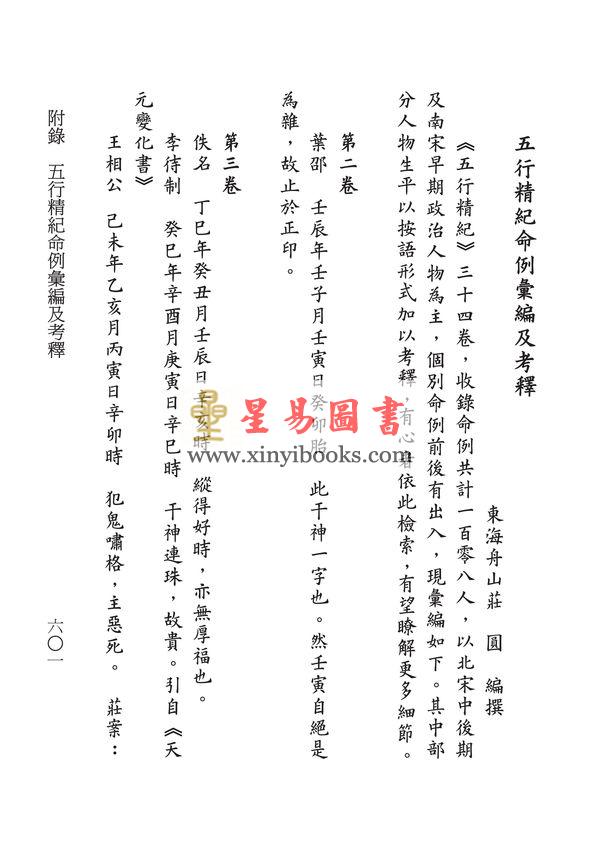 五行精紀命例彙編及考釋
東海舟山莊　圓　編撰
《五行精紀》三十四卷，收錄命例共計一百零八人，以北宋中後期
及南宋早期政治人物為主，個別命例前後有出入，現彙編如下。其中部
分人物生平以按語形式加以考釋，有心者依此檢索，有望瞭解更多細節。
第二卷
葉邵　壬辰年壬子月壬寅日癸卯胎　此干神一字也。然壬寅自絕是
為雜，故止於正印。
第三卷
佚名　丁巳年癸丑月壬辰日辛亥時　縱得好時，亦無厚福也。
李待制　癸巳年辛酉月庚寅日辛巳時　干神連珠，故貴。引自《天
元變化書》
王相公　己未年乙亥月丙寅日辛卯時　犯鬼嘯格，主惡死。　莊案：
附錄　五行精紀命例彙編及考釋
六〇一
星易圖書
www.xinyibooks.com